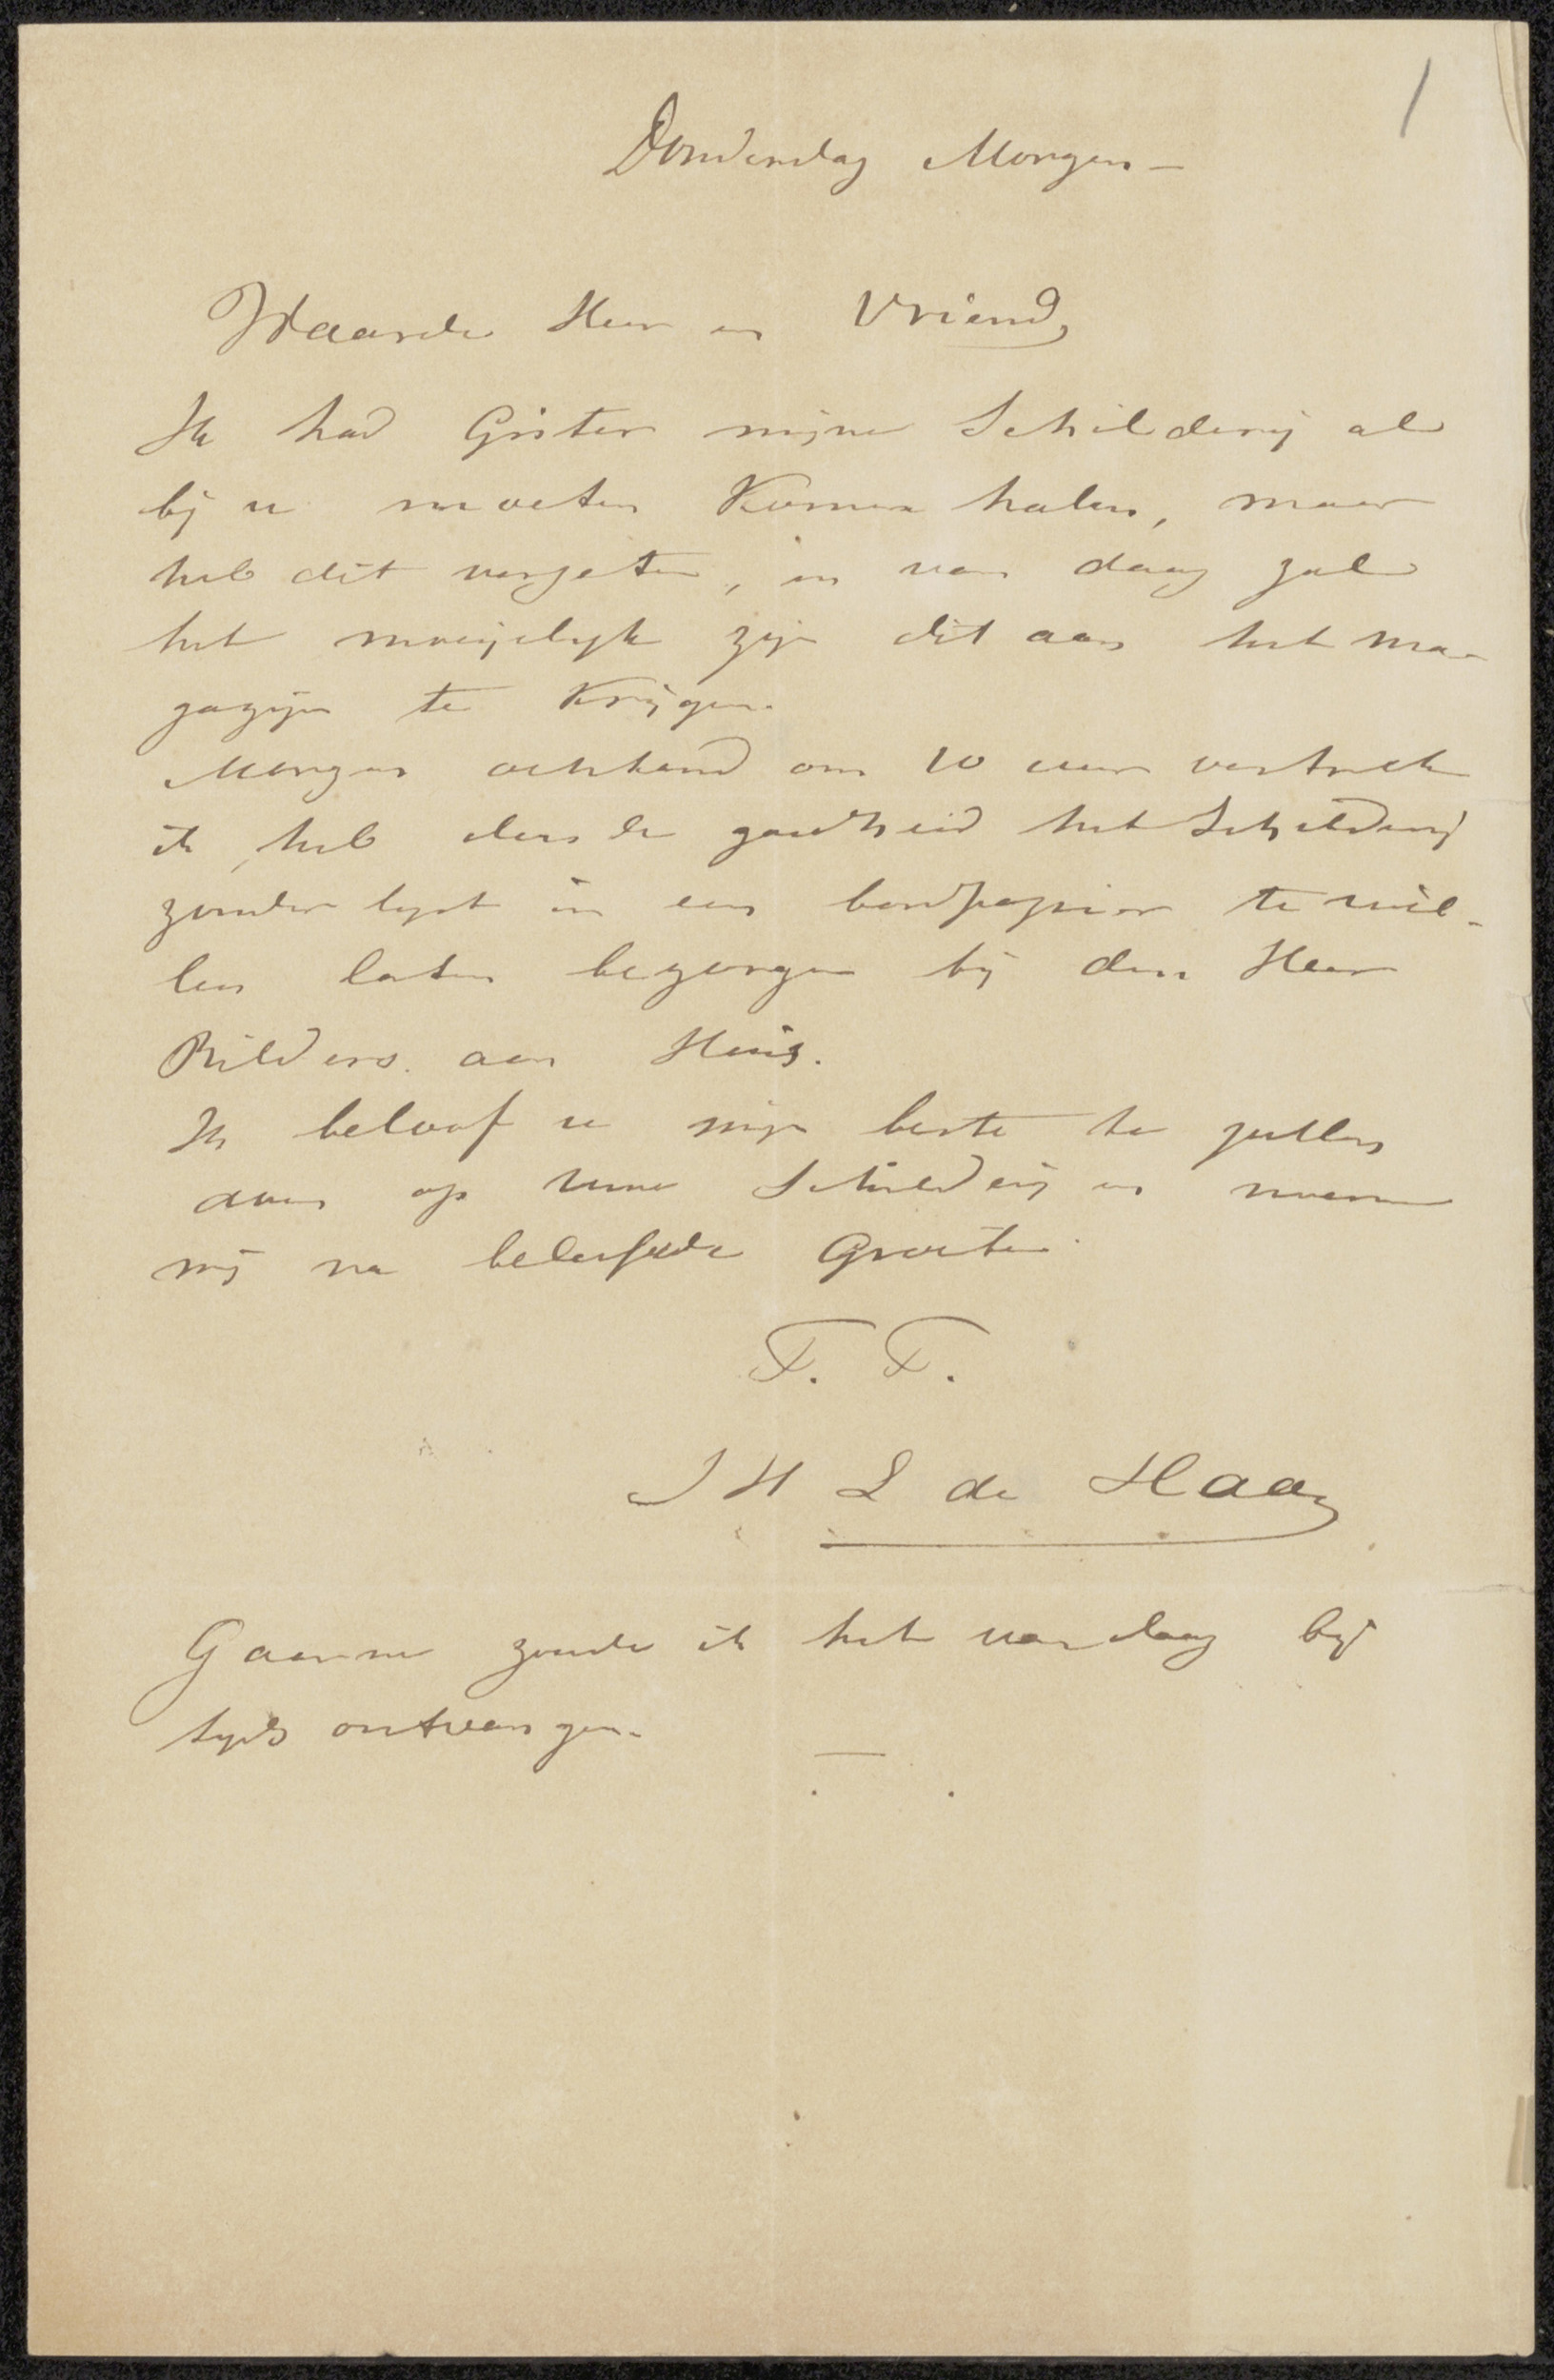 1
Donderdag Morgen —
Waarde Heer en Vriend,
Ik had Gister mijne Schilderij al
bij u moeten Komen halen, maar
heb dit vergeten, en van daag zal
het moeijelijk zijn dit aan het ma-
gazijn te Krijgen.
Morgen ochtend om 10 uur vertrek
ik, heb dus de goedheid het Schilderij
zonder lijst in een bordpapier te wil-
len laten bezorgen bij den Heer
Bilders. aan Huis.
Ik beloof u mijn beste te zullen
doen op uwe Schilderij en noem
mij na beleefde Groeten.
T. T.
J H L de Haas
Gaarne zoude ik het van daag bij
tijds ontvangen.